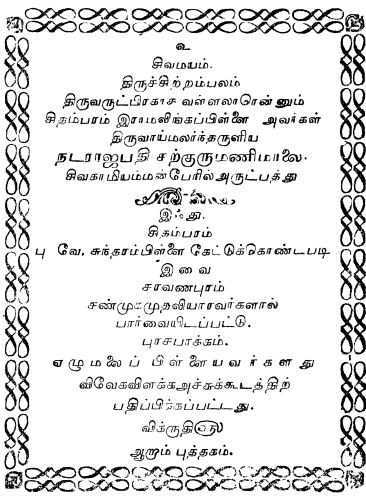 உ
சிவமயம்.
திருச்சிற்றம்பலம்
திருவருட்பிரகாச வள்ளலாரென்னும்
சிதம்பரம் இராமலிங்கப்பிள்ளை அவர்கள்
திருவாய்மலர்ந்தருளிய
நடராஜபதி சற்குருமணிமாலை.
சிவகாமியம்மன்பேரில்அருட்பத்து
இஃது.
சிதம்பரம்
பு வே. சுந்தரம்பிள்ளை கேட்டுக்கொண்டபடி
இவை
சரவணபுரம்
சண்முகமுதலியாரவர்களால்
பார்வையிடப்பட்டு.
புரசபாக்கம்.
ஏழுமலைப் பிள்ளையவர்களது
விவேகவிளக்கஅச்சுக்கூடத்திற்
பதிப்பிக்கப்பட்டது.
விக்ருதி௵
ஆரும் புத்தகம்.